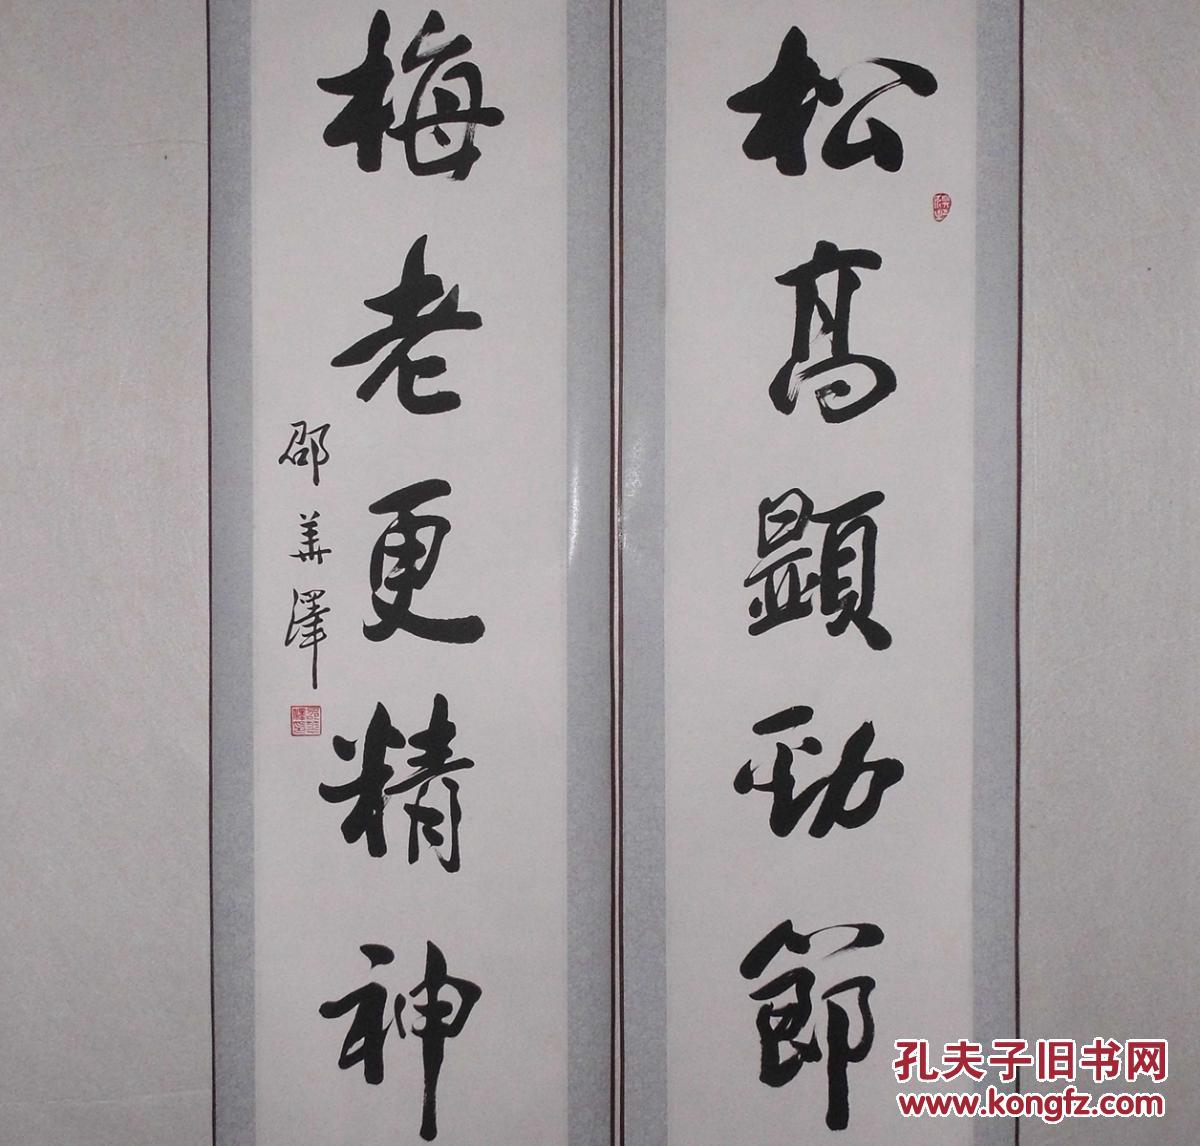 松高顯勁節
梅老更精神
邵華澤
孔夫子旧书网
www.kongfz.com